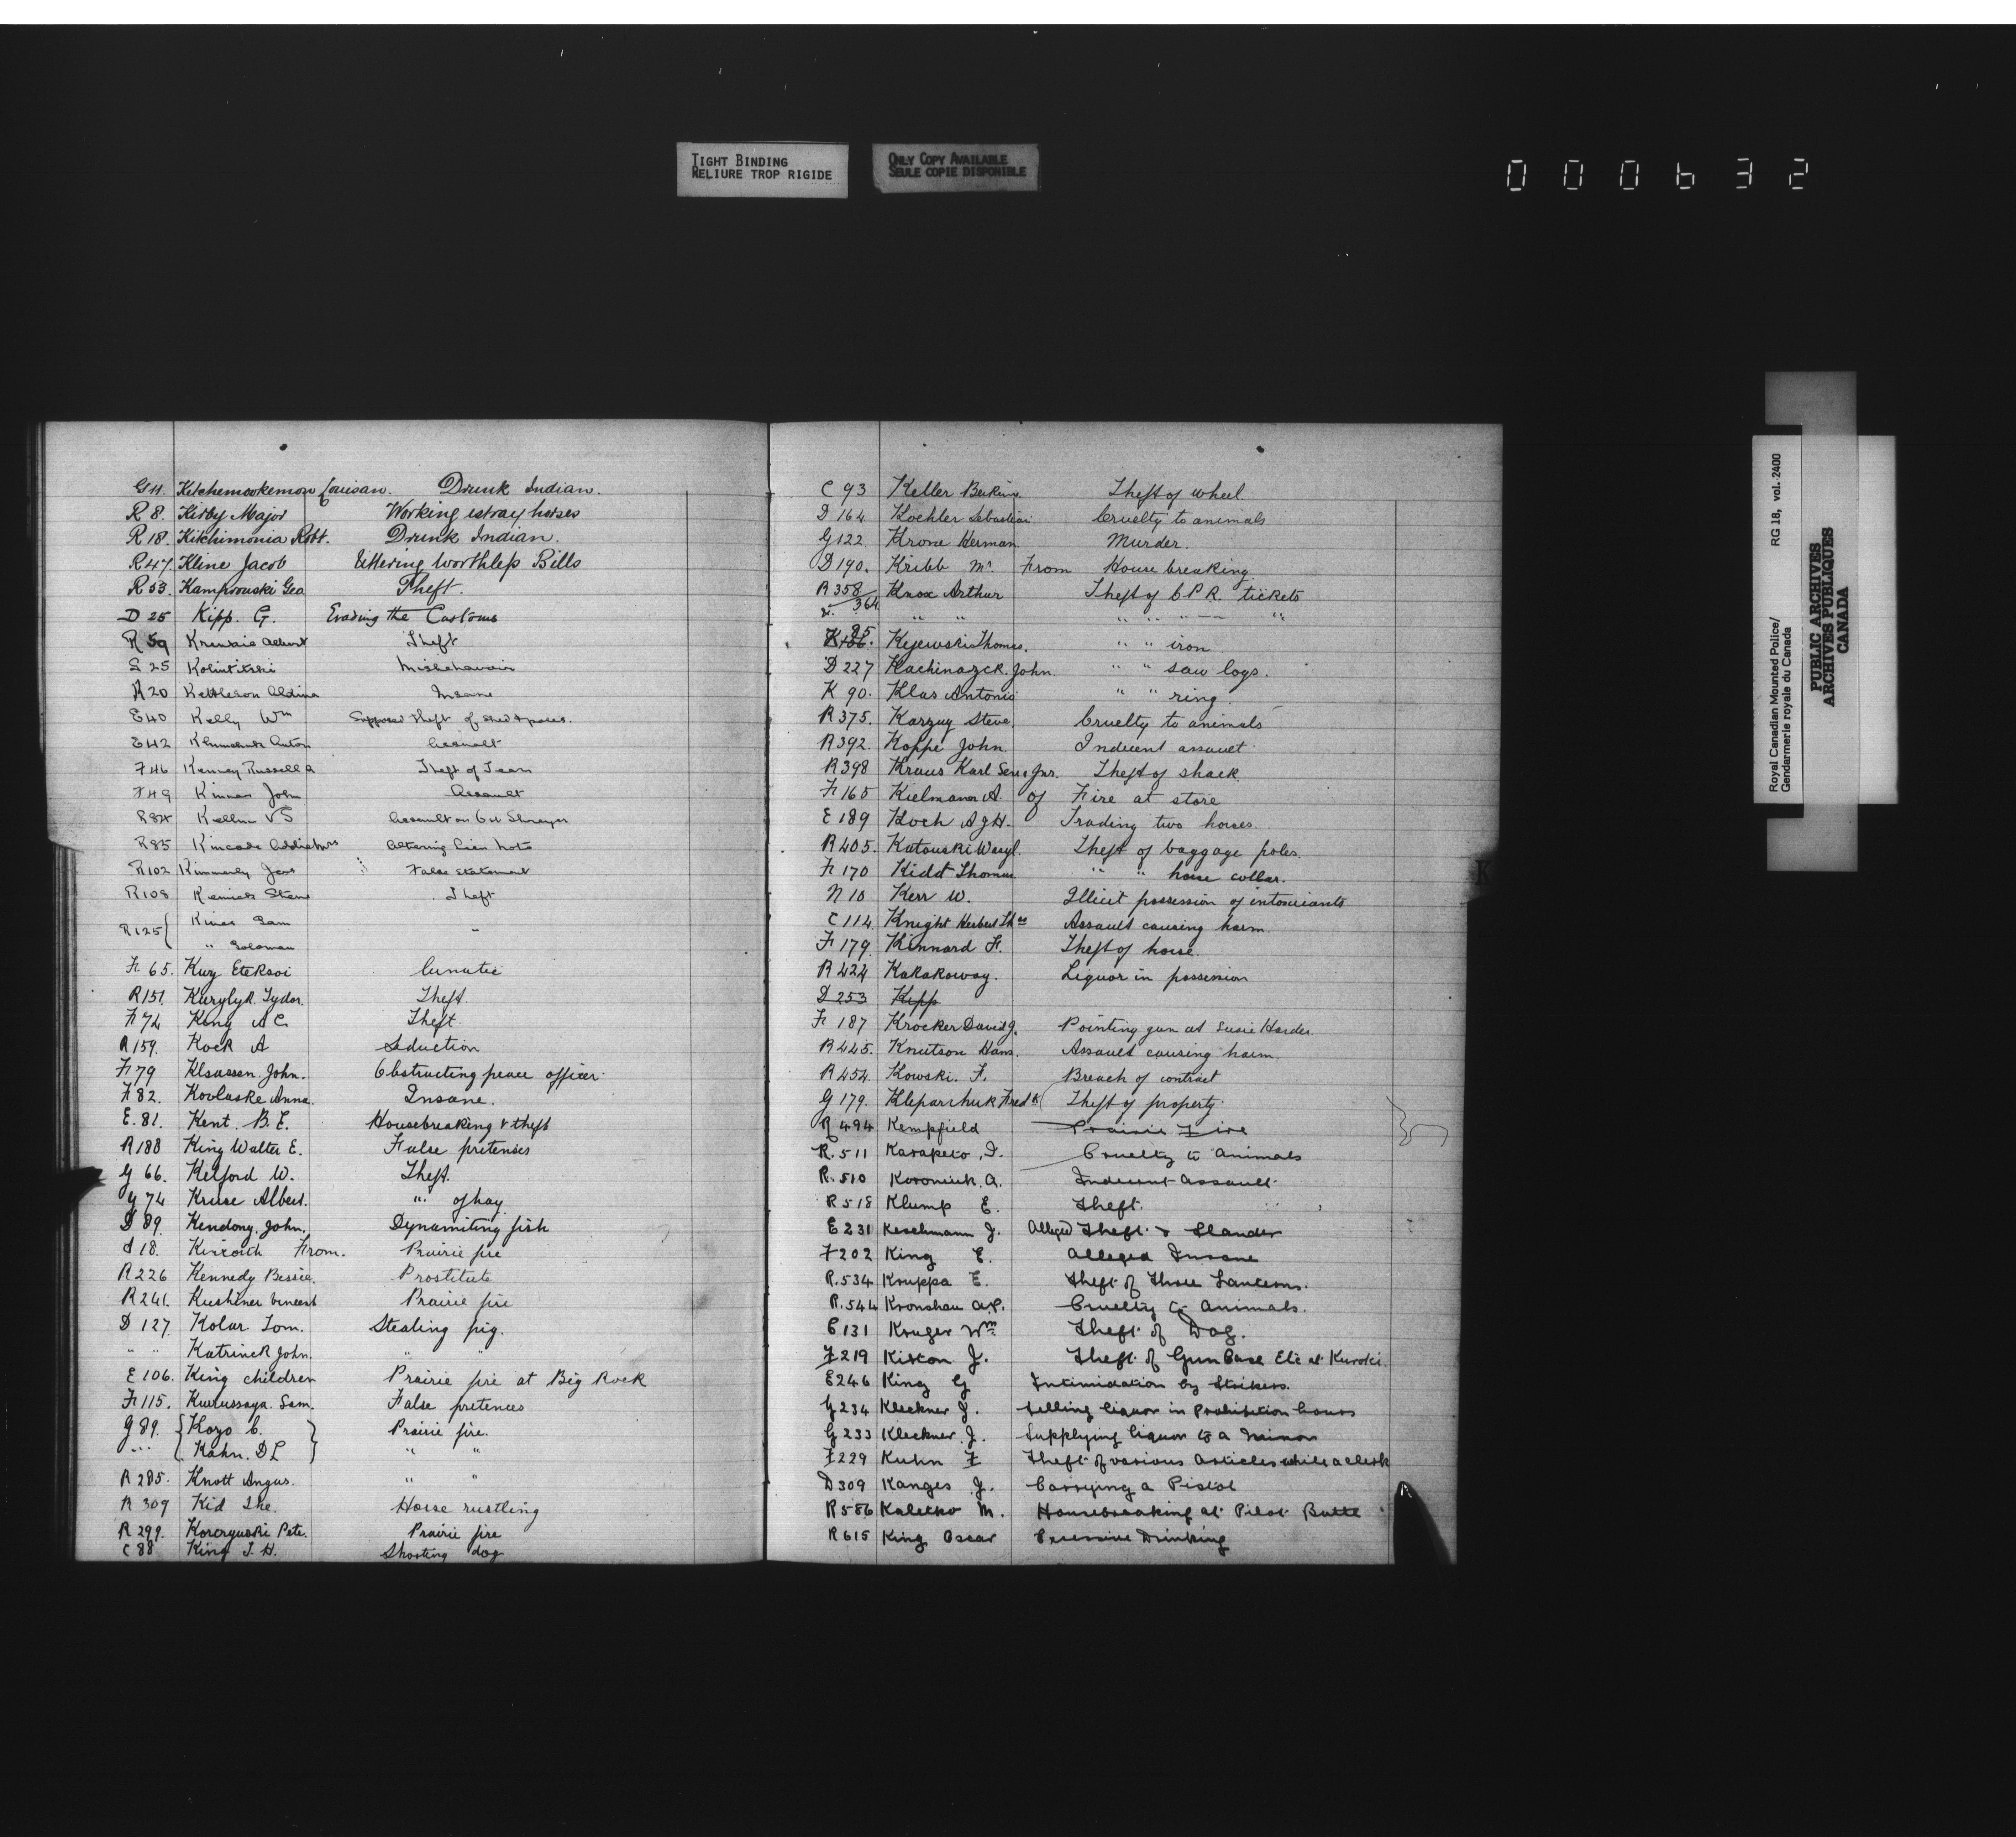 TIGHT BINDING
RELIURE TROP RIGIDE
ONLY COPY AVAILABLE
SEULE COPIE DISPONIBLE
000632
G 11. Kitchemookemon Louisan. Drunk Indian.
R 8. Kirby Major Working estray horses
R 18. Kitchimonia Robt. Drunk Indian.
R 47. Kline Jacob Uttering worthless Bills
R 53. Geo Theft.
D 25 Kipp. G. Evading the Customs
R 59 Albert Theft
S 25 Misbehavior
R 20 Kettleson Insane
E 40 Kelly Wm Supposed theft of
E 42 Anton Assault
F 46 Kenney Russell A Theft of Team
F 49 John Assault
R 84 Assault on
R 85 Kincade Altering Lien Note
R 102 Kimmerly False Statement
R 108 Theft
R 125 { Sam
" Soloman "
F 65. Kuzy Lunatic
R 151. Kurylyk. Theft.
F 74 King A C. Theft.
R 159. Kock A Seduction
F 79 Klsassen. John. Obstructing peace officer.
F 82. Kovluske Anna. Insane.
E. 81. Kent. B. E. Housebreaking & theft
R 188 King Walter E. False pretenses
G 66. Kelford W. Theft.
G 74 Kruse Albert. " of hay
D 89. Kendony. John. Dynamiting fish
18. From. Prairie fire
R 226 Kennedy Bessie. Prostitute
R 241. Kushner Vincent Prairie fire
D 127. Kolar Tom. Stealing pig.
" " Katrinck John. " "
E 106. King children Prairie fire at Big Rock
F 115. Sam. False pretences
G 89. { Kozo C. } Prairie fire.
" " { Kahn. D L } " "
R 285. Knott Angus. " "
R 309 Kid The. Horse rustling
R 299. Pete. Prairie fire
C 88 King J. H. Shooting dog
C 93 Keller Theft of wheel
D 164 Kochler Sebastian Cruelty to animals
G 122 Krone Herman. Murder.
D 190. Kribb Mr. From House breaking
R 358 Knox Arthur Theft of C P R. tickets
& 364 " " " " " — "
K 95 Kejewski Thomas. " " iron
D 227 Kachinazck. John. " " saw logs.
K 90. Klas Antonio " " ring.
R 375. Karzuy Steve. Cruelty to animals
R 392. Koppe John. Indecent assault
R 398 Kraus Karl Sen. & Jnr. Theft of shack.
F 165 Kielmann A. of Fire at store
E 189 Koch A J H. Trading two horses.
R 405. Katouski Wasyl. Theft of baggage poles.
F 170 Kidd Thomas " " horse collar.
N 10 Kerr W. Illicit possession of intoxicants
C 114. Knight Herbert Thos Assault causing harm.
F 179. Kinnard F. Theft of horse.
R 424 Kakakoway. Liquor in possession
D 253 Kipp
F 187 Krocker David J. Pointing gun at Susie Harder.
R 445. Knutson Hans. Assault causing harm.
R 454. Kowski. F. Breach of contract
G 179. Kleparchuk Fredk Theft of property.
R 494 Kempfield Prairie Fire
R. 511 Karapeto, I. Cruelty to animals
R. 510 Koroniuk. A. Indecent Assault.
R 518 Klump E. Theft.
E 231 Keschmann J. Alleged Theft. & Slander
F 202 King E. Alleged Insane
R. 534 Kruppa E. Theft of three Lanterns.
R. 544 Kronshau A.P. Cruelty to Animals.
C 131 Kruger Wm. Theft of Dog.
F 219 Kiston J. Theft of Gun Case Etc at Kuroki.
E 246 King G Intimidation by Strikers.
G 234 Kleckner J. Selling liquor in Prohibition hours
G 233 Kleckner J. Supplying liquor to a Minor
F 229 Kuhn F Theft of various Articles while a clerk
D 309 Kanges J. Carrying a Pistol
R 586 Kaletko M. Housebreaking at Pilot Butte
R 615 King Oscar Excessive Drinking
K
Royal Canadian Mounted Police/
Gendarmerie royale du Canada
RG 18, vol. 2400
PUBLIC ARCHIVES
ARCHIVES PUBLIQUES
CANADA